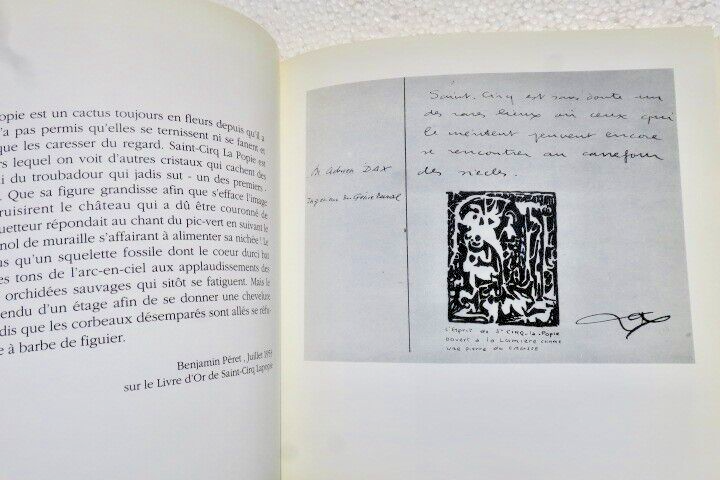 opie est un cactus toujours en fleurs depuis qu'il a
'a pas permis qu'elles se ternissent ni se fanent et
que les caresser du regard. Saint-Cirq La Popie est
rs lequel on voit d'autres cristaux qui cachent des
i du troubadour qui jadis sut - un des premiers -
. Que sa figure grandisse afin que s'efface l'image
ruisirent le château qui a dû être couronné de
uetteur répondait au chant du pic-vert en suivant le
nol de muraille s'affairant à alimenter sa nichée ! Le
us qu'un squelette fossile dont le coeur durci bat
es tons de l'arc-en-ciel aux applaudissements des
orchidées sauvages qui sitôt se fatiguent. Mais le
endu d'un étage afin de se donner une chevelure
dis que les corbeaux désemparés sont allés se réfu-
e à barbe de figuier.
Benjamin Péret , Juillet 1959
sur le Livre d'Or de Saint-Cirq Lapopie
Saint-Cirq est sans doute un
des rares lieux où ceux qui
le méritent peuvent encore
se rencontrer au carrefour
des siècles.
Adrien DAX
Ingénieur du Génie Rural
L'Esprit de St CIRQ-la-Popie
ouvert à la Lumière comme
une pierre du CAUSSE